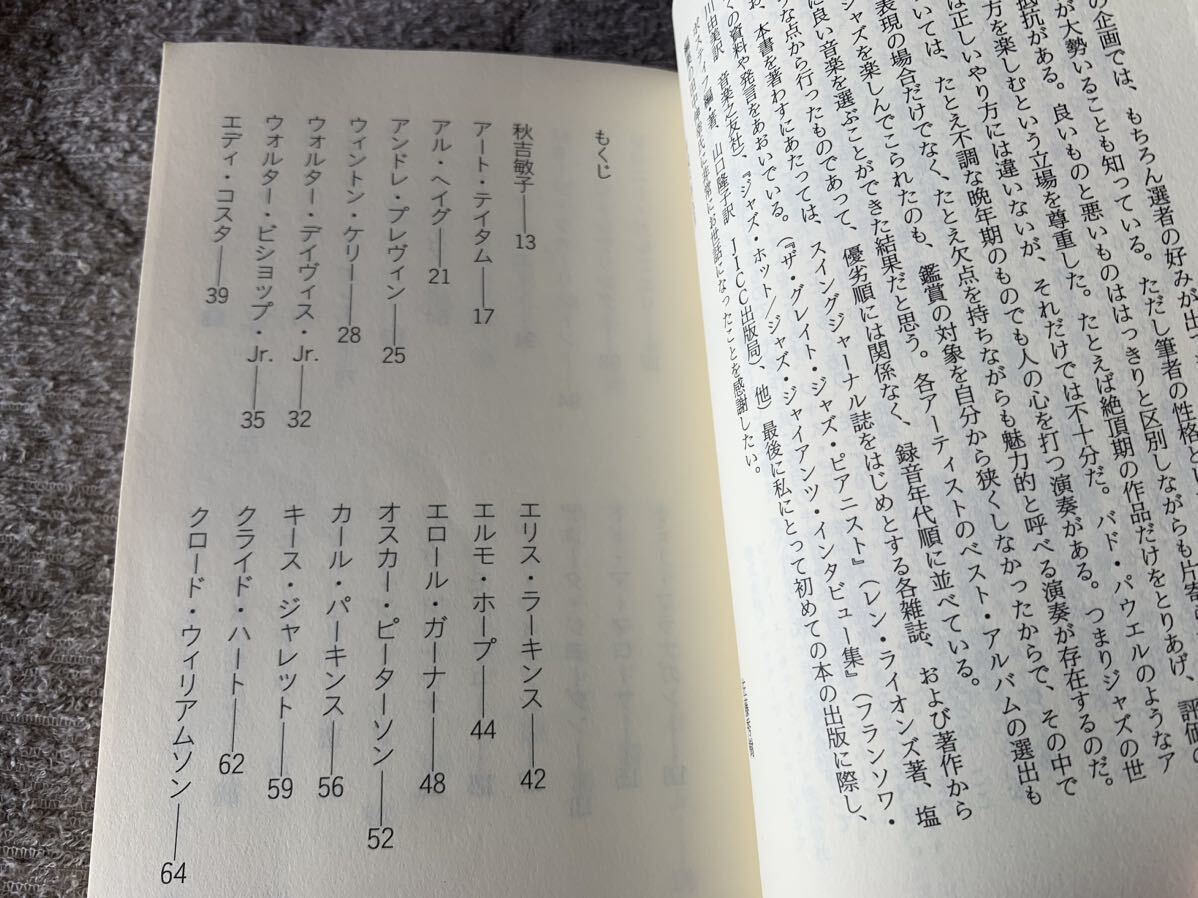 の企画では、もちろん選者の好みが出
が大勢いることも知っている。ただし筆者の性格とし
抵抗がある。良いものと悪いものははっきりと区別しながらも片寄
方を楽しむという立場を尊重した。たとえば絶頂期の作品だけをとりあげ、評価の
は正しいやり方には違いないが、それだけでは不十分だ。バド・パウエルのようなア
いては、たとえ不調な晩年期のものでも人の心を打つ演奏がある。つまりジャズの世
表現の場合だけでなく、たとえ欠点を持ちながらも魅力的と呼べる演奏が存在するのだ。
ジャズを楽しんでこられたのも、鑑賞の対象を自分から狭くしなかったからで、その中で
に良い音楽を選ぶことができた結果だと思う。各アーティストのベスト・アルバムの選出も
な点から行ったものであって、優劣順には関係なく、録音年代順に並べている。
お、本書を著わすにあたっては、スイングジャーナル誌をはじめとする各雑誌、および著作から
くの資料や発言をあおいでいる。（『ザ・グレイト・ジャズ・ピアニスト』（レン・ライオンズ著、塩
川由美訳 音楽之友社）、『ジャズ・ホット/ジャズ・ジャイアンツ・インタビュー集』（フランソワ・
編・著、山口隆子訳 JICC出版局）、他）最後に私にとって初めての本の出版に際し、
に非常にお世話になったことを感謝したい。
もくじ
秋吉敏子――13
アート・テイタム――17
アル・ヘイグ――21
アンドレ・プレヴィン――25
ウィントン・ケリー――28
ウォルター・デイヴィス・Jr.――32
ウォルター・ビショップ・Jr.――35
エディ・コスタ――39
エリス・ラーキンス――42
エルモ・ホープ――44
エロール・ガーナー――48
オスカー・ピーターソン――52
カール・パーキンス――56
キース・ジャレット――59
クライド・ハート――62
クロード・ウィリアムソン――64